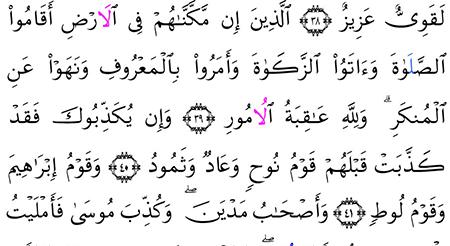 لَقَوِيٌّ عَزِيزٌ ۝٣٨ اَ۬لَّذِينَ إِن مَّكَّنَّٰهُمْ فِى اِ۬لَارْضِ أَقَامُواْ
اُ۬لصَّلَوٰةَ وَءَاتَوُاْ اُ۬لزَّكَوٰةَ وَأَمَرُواْ بِالْمَعْرُوفِ وَنَهَوْاْ عَنِ
اِ۬لْمُنكَرِۖ وَلِلهِ عَٰقِبَةُ اُ۬لُامُورِ ۝٣٩ وَإِن يُكَذِّبُوكَ فَقَدْ
كَذَّبَتْ قَبْلَهُمْ قَوْمُ نُوحٍ وَعَادٌ وَثَمُودُ ۝٤٠ وَقَوْمُ إِبْرَٰهِيمَ
وَقَوْمُ لُوطٍ ۝٤١ وَأَصْحَٰبُ مَدْيَنَۖ وَكُذِّبَ مُوسَىٰ فَأَمْلَيْتُ